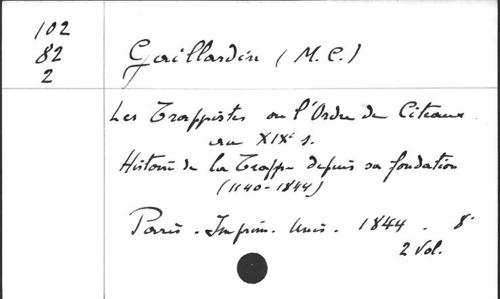 102
82
2
Gaillardin (M. C.)
Les Trappistes ou l'Ordre de Citeaux
au XIXe s.
Histoire de la Trappe depuis sa fondation
(1140-1844)
Paris - Imprim. Unis. - 1844. - 8°
2 vol.